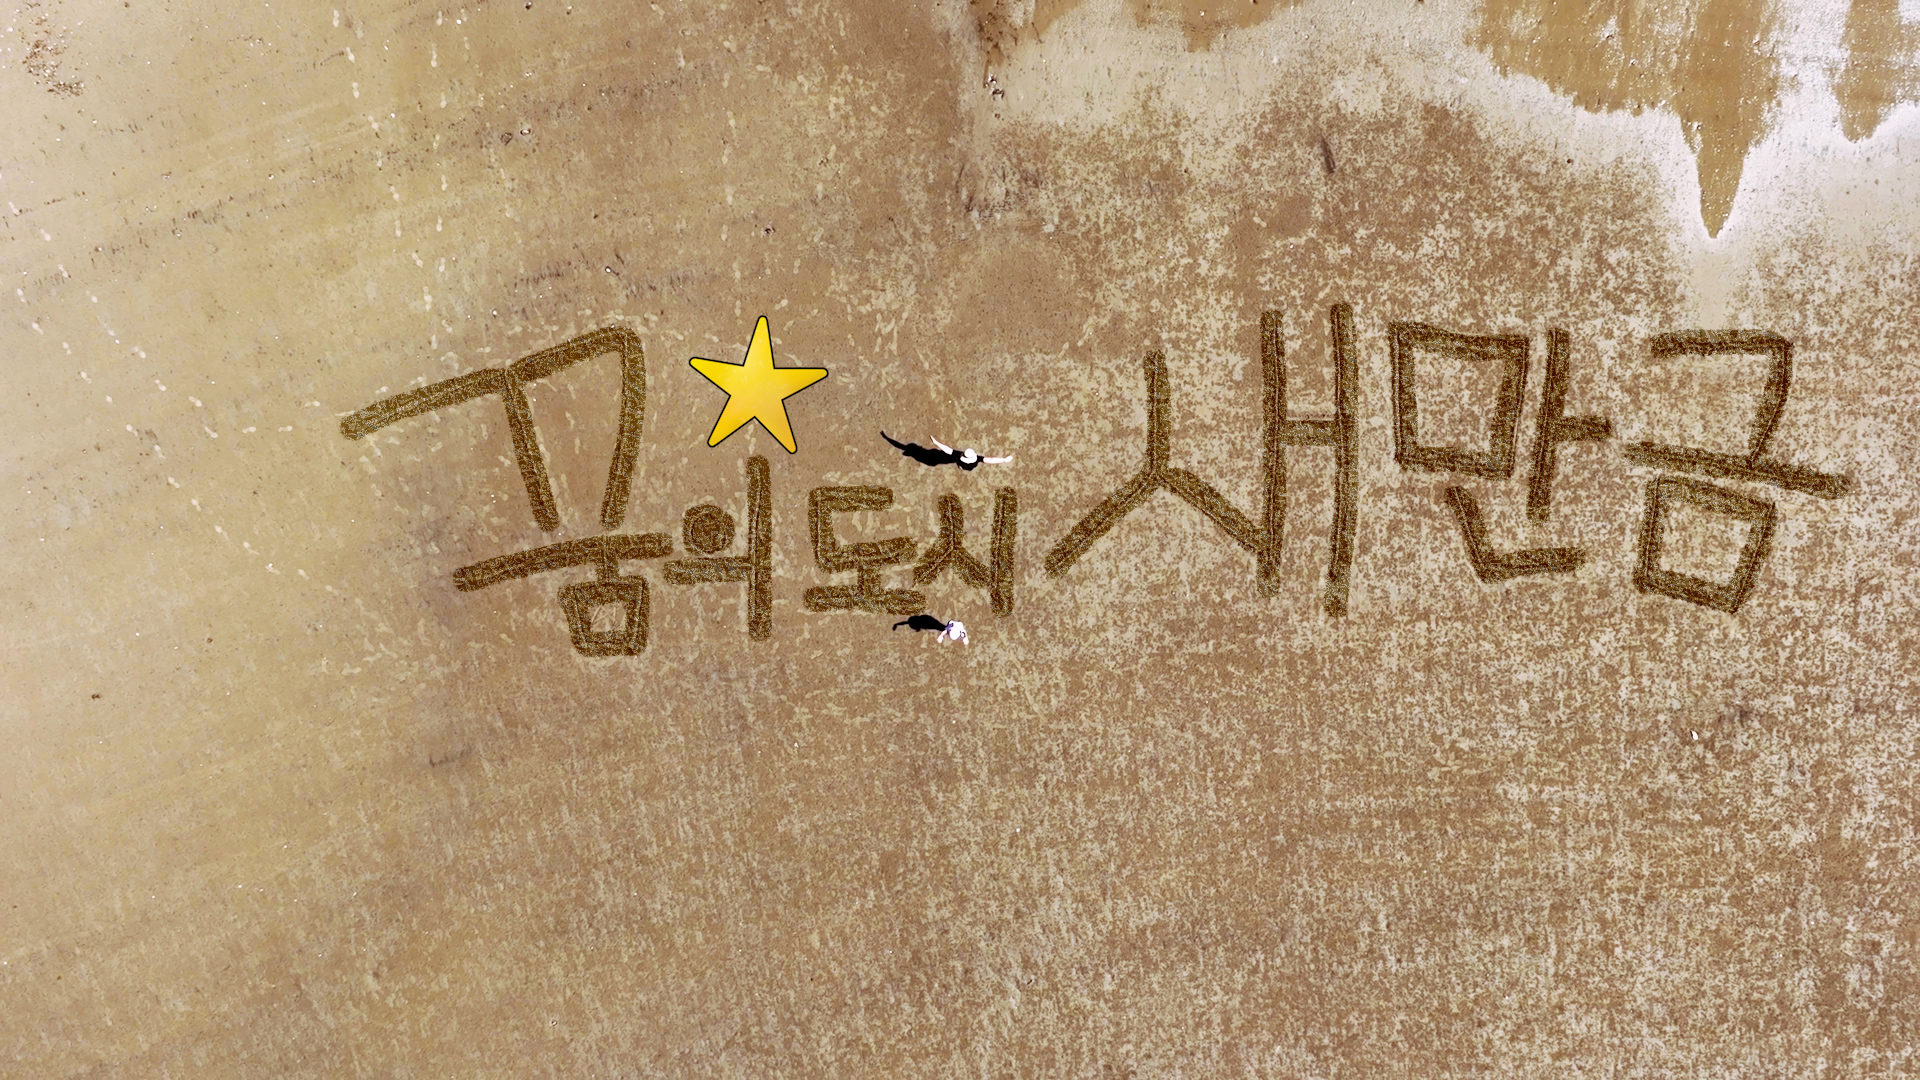 꿈의 도시 새만금